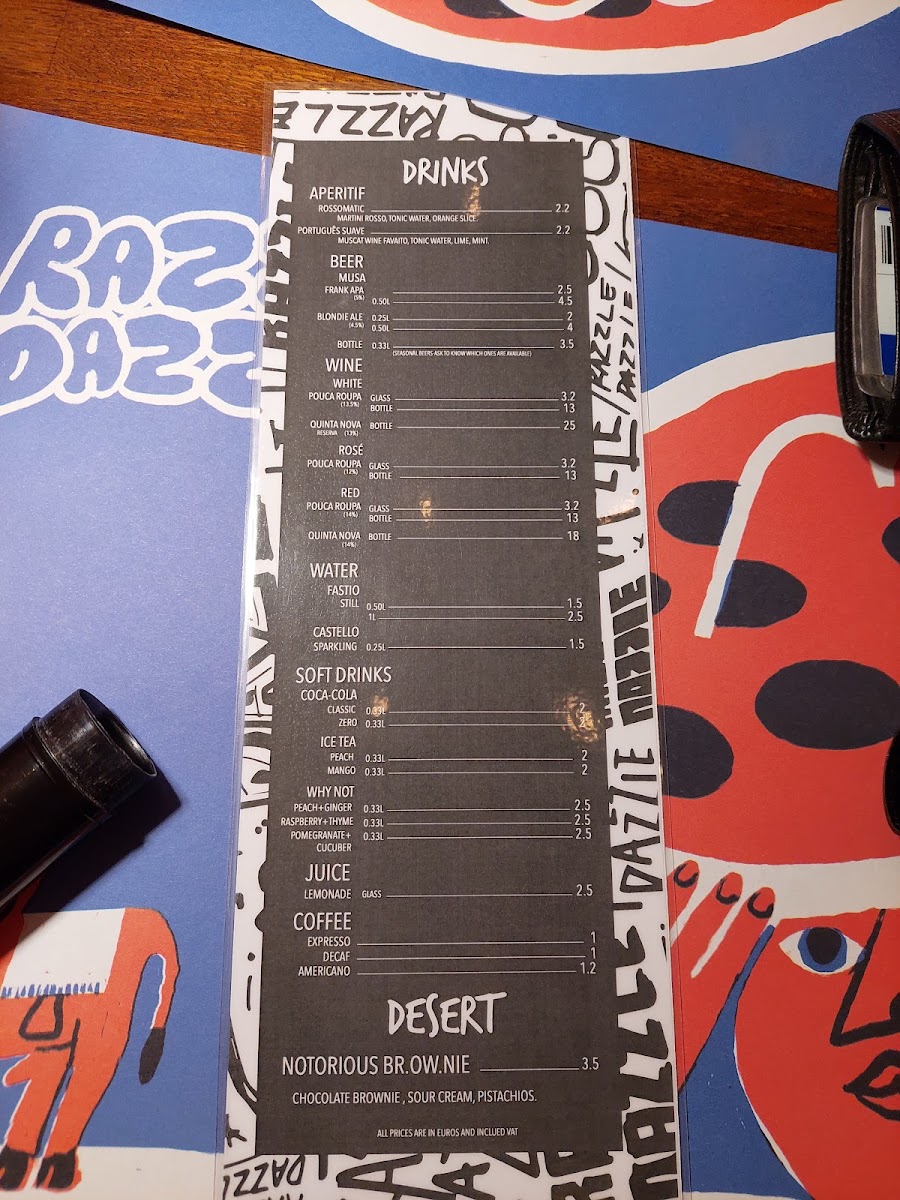 RAZZLE
RAZZ
DAZZ
DRINKS
APERITIF
ROSSOMATIC 2.2
MARTINI ROSSO, TONIC WATER, ORANGE SLICE.
PORTUGUÊS SUAVE 2.2
MUSCAT WINE FAVAITO, TONIC WATER, LIME, MINT.
BEER
MUSA
FRANK APA 2.5
(5%) 0.50L 4.5
BLONDIE ALE 0.25L 2
(4.5%) 0.50L 4
BOTTLE 0.33L 3.5
(SEASONAL BEERS-ASK TO KNOW WHICH ONES ARE AVAILABLE)
WINE
WHITE
POUCA ROUPA GLASS 3.2
(13.5%) BOTTLE 13
QUINTA NOVA BOTTLE 25
RESERVA (13%)
ROSÉ
POUCA ROUPA GLASS 3.2
(12%) BOTTLE 13
RED
POUCA ROUPA GLASS 3.2
(14%) BOTTLE 13
QUINTA NOVA BOTTLE 18
(14%)
WATER
FASTIO
STILL 0.50L 1.5
1L 2.5
CASTELLO
SPARKLING 0.25L 1.5
SOFT DRINKS
COCA-COLA
CLASSIC 0.33L 2
ZERO 0.33L 2
ICE TEA
PEACH 0.33L 2
MANGO 0.33L 2
WHY NOT
PEACH+GINGER 0.33L 2.5
RASPBERRY+THYME 0.33L 2.5
POMEGRANATE+ 0.33L 2.5
CUCUBER
JUICE
LEMONADE GLASS 2.5
COFFEE
EXPRESSO 1
DECAF 1
AMERICANO 1.2
DESERT
NOTORIOUS BR.OW.NIE 3.5
CHOCOLATE BROWNIE , SOUR CREAM, PISTACHIOS.
ALL PRICES ARE IN EUROS AND INCLUED VAT
RAZZLE/
DAZZLE/
DAZZLE